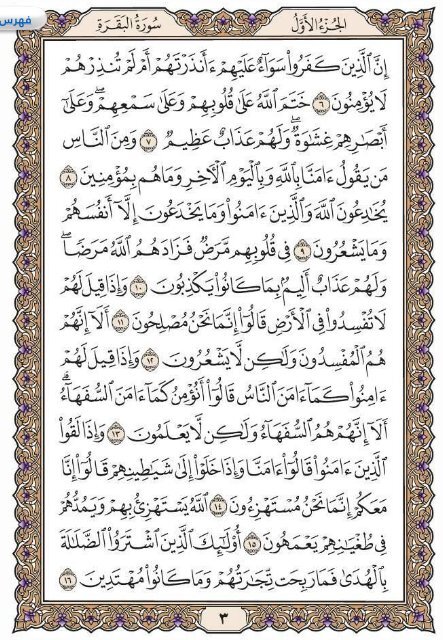 فهرس
سُورَةُ البَقَرَةِ
الجُزْءُ الأَوَّلُ
إِنَّ ٱلَّذِينَ كَفَرُوا۟ سَوَآءٌ عَلَيْهِمْ ءَأَنذَرْتَهُمْ أَمْ لَمْ تُنذِرْهُمْ
لَا يُؤْمِنُونَ ٦ خَتَمَ ٱللَّهُ عَلَىٰ قُلُوبِهِمْ وَعَلَىٰ سَمْعِهِمْ ۖ وَعَلَىٰٓ
أَبْصَٰرِهِمْ غِشَٰوَةٌ ۖ وَلَهُمْ عَذَابٌ عَظِيمٌ ٧ وَمِنَ ٱلنَّاسِ
مَن يَقُولُ ءَامَنَّا بِٱللَّهِ وَبِٱلْيَوْمِ ٱلْءَاخِرِ وَمَا هُم بِمُؤْمِنِينَ ٨
يُخَٰدِعُونَ ٱللَّهَ وَٱلَّذِينَ ءَامَنُوا۟ وَمَا يَخْدَعُونَ إِلَّآ أَنفُسَهُمْ
وَمَا يَشْعُرُونَ ٩ فِى قُلُوبِهِم مَّرَضٌ فَزَادَهُمُ ٱللَّهُ مَرَضًا ۖ
وَلَهُمْ عَذَابٌ أَلِيمٌۢ بِمَا كَانُوا۟ يَكْذِبُونَ ١٠ وَإِذَا قِيلَ لَهُمْ
لَا تُفْسِدُوا۟ فِى ٱلْأَرْضِ قَالُوٓا۟ إِنَّمَا نَحْنُ مُصْلِحُونَ ١١ أَلَآ إِنَّهُمْ
هُمُ ٱلْمُفْسِدُونَ وَلَٰكِن لَّا يَشْعُرُونَ ١٢ وَإِذَا قِيلَ لَهُمْ
ءَامِنُوا۟ كَمَآ ءَامَنَ ٱلنَّاسُ قَالُوٓا۟ أَنُؤْمِنُ كَمَآ ءَامَنَ ٱلسُّفَهَآءُ ۗ
أَلَآ إِنَّهُمْ هُمُ ٱلسُّفَهَآءُ وَلَٰكِن لَّا يَعْلَمُونَ ١٣ وَإِذَا لَقُوا۟
ٱلَّذِينَ ءَامَنُوا۟ قَالُوٓا۟ ءَامَنَّا وَإِذَا خَلَوْا۟ إِلَىٰ شَيَٰطِينِهِمْ قَالُوٓا۟ إِنَّا
مَعَكُمْ إِنَّمَا نَحْنُ مُسْتَهْزِءُونَ ١٤ ٱللَّهُ يَسْتَهْزِئُ بِهِمْ وَيَمُدُّهُمْ
فِى طُغْيَٰنِهِمْ يَعْمَهُونَ ١٥ أُو۟لَٰٓئِكَ ٱلَّذِينَ ٱشْتَرَوُا۟ ٱلضَّلَٰلَةَ
بِٱلْهُدَىٰ فَمَا رَبِحَت تِّجَٰرَتُهُمْ وَمَا كَانُوا۟ مُهْتَدِينَ ١٦
٣